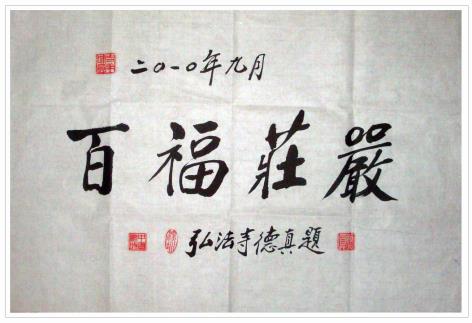 二〇一〇年九月
百福莊嚴
弘法寺德真題